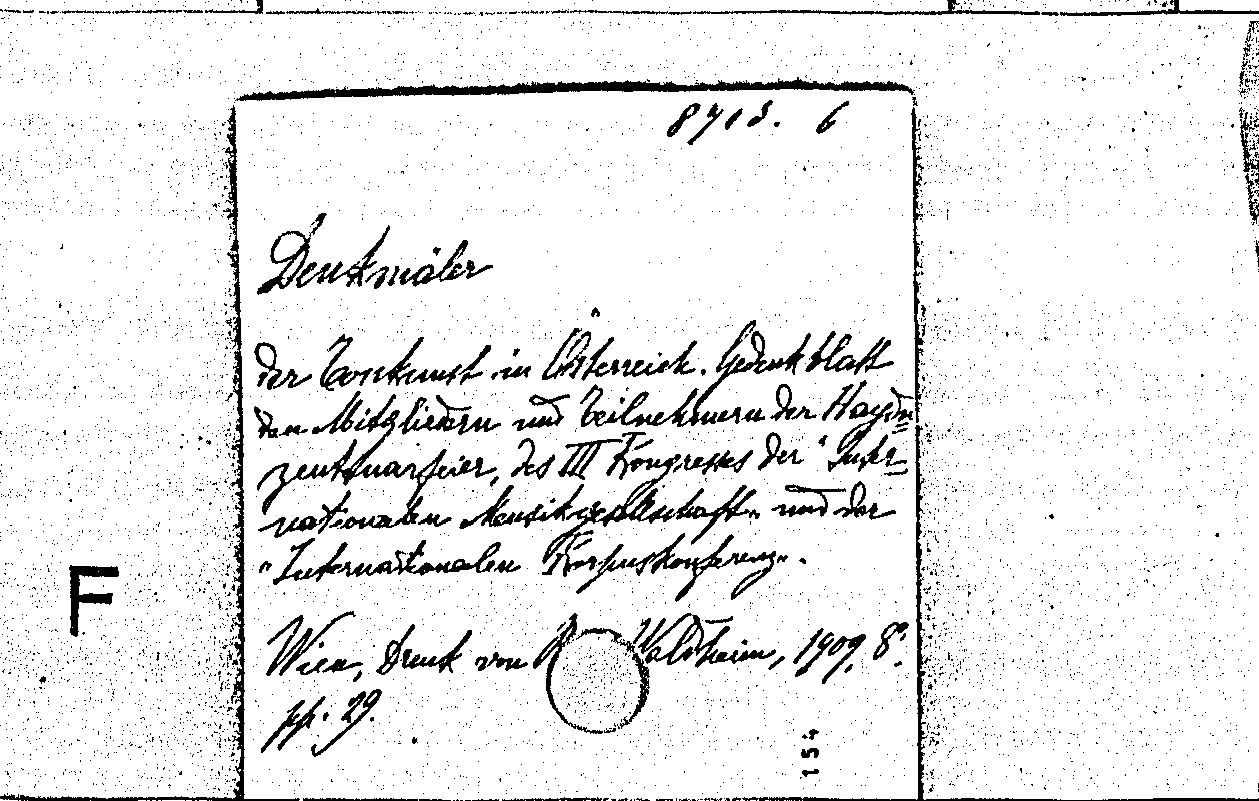 8713. 6
Denkmäler
der Tonkunst in Österreich. Gedenkblatt
den Mitgliedern und Teilnehmern der Haydn=
zentenarfeier, des III Kongresses der "Inter=
nationalen Musikgesellschaft" und der
"Internationalen Korpuskonferenz".
F
Wien, Druck von R. Waldheim, 1909. 8º.
pp. 29.
154